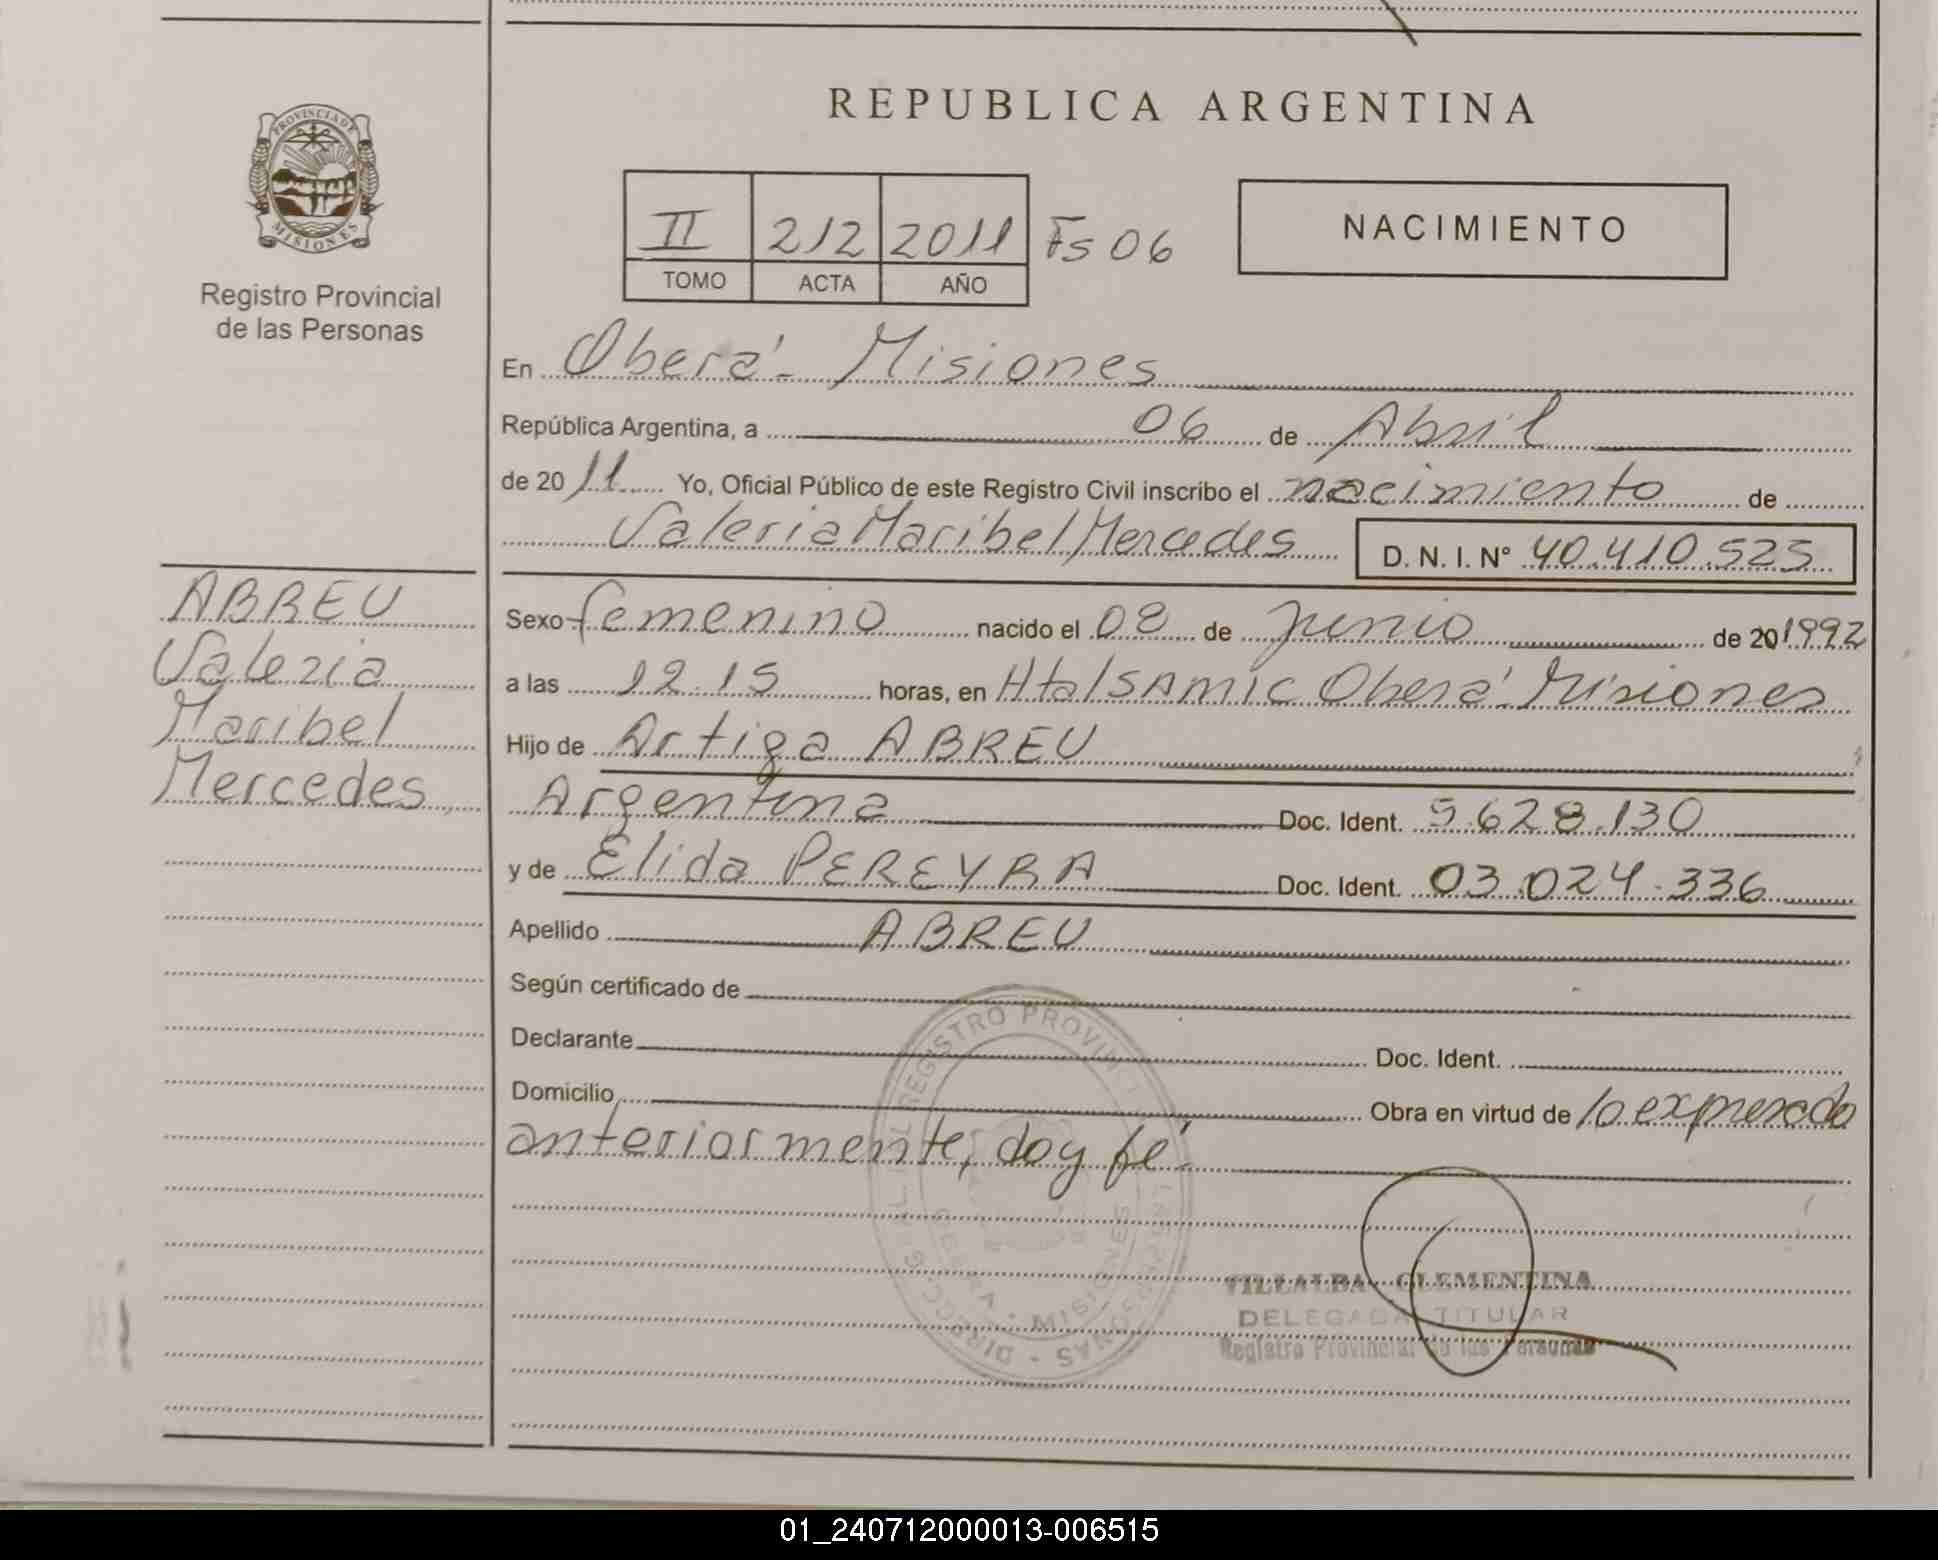 PROVINCIA DE
MISIONES
Registro Provincial
de las Personas
REPUBLICA ARGENTINA
II 212 2011 Fs 06
TOMO ACTA AÑO
NACIMIENTO
En Oberá - Misiones
República Argentina, a 06 de Abril
de 2011 Yo, Oficial Público de este Registro Civil inscribo el nacimiento de
Valeria Maribel Mercedes D. N. I. Nº 40.410.525
ABREU
Valeria
Maribel
Mercedes
Sexo femenino nacido el 08 de Junio de 20 1992
a las 12.15 horas, en Htal SAMIC Oberá Misiones
Hijo de Artiga ABREU
Argentina Doc. Ident. 5.628.130
y de Elida PEREYRA Doc. Ident. 03.024.336
Apellido ABREU
Según certificado de
Declarante Doc. Ident.
Domicilio Obra en virtud de lo expresado
anteriormente, doy fé.
VILLALBA CLEMENTINA
DELEGADA TITULAR
Registro Provincial de las Personas
01_240712000013-006515